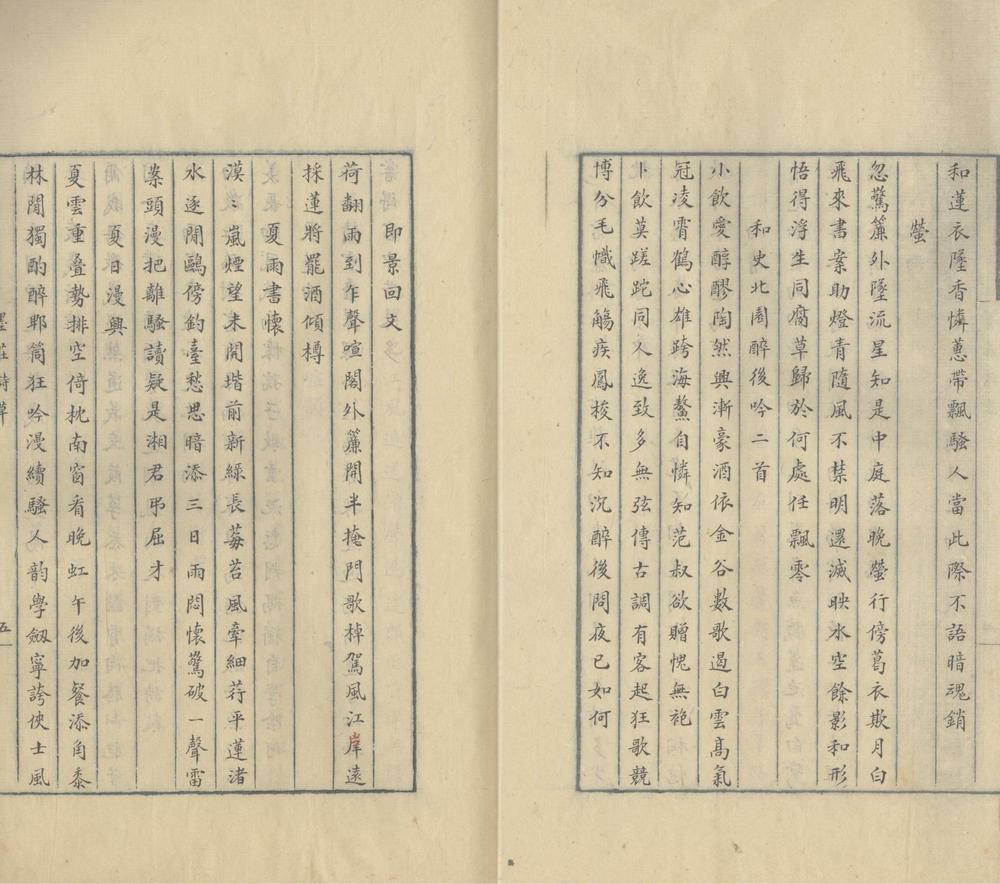 和蓮衣墜香憐蕙帶飄騷人當此際不語暗魂銷
螢
忽驚簾外墜流星知是中庭落晚螢行傍葛衣欺月白
飛來書案助燈青隨風不禁明還滅映水空餘影和形
悟得浮生同腐草歸於何處任飄零
和史北園醉後吟二首
小飲愛醇醪陶然興漸豪酒依金谷數歌遏白雲高氣
冠凌霄鶴心雄跨海鰲自憐知范叔欲贈愧無袍
卜飲莫蹉跎同人逸致多無弦傳古調有客起狂歌競
博分毛幟飛觴疾鳳梭不知沉醉後問夜已如何
即景回文
荷翻雨到乍聲喧閣外簾開半掩門歌棹駕風江岸遠
採蓮將罷酒傾樽
夏雨書懷
漠〻嵐煙望未開堦前新綠長莓苔風牽細荇平蓮渚
水逐閒鷗傍釣臺愁思暗添三日雨悶懷驚破一聲雷
案頭漫把離騷讀疑是湘君弔屈才
夏日漫興
夏雲重疊勢排空倚枕南窗看晚虹午後加餐添角黍
林閒獨酌醉郫筒狂吟漫續騷人韵學劔寧誇俠士風
墨莊詩草
五